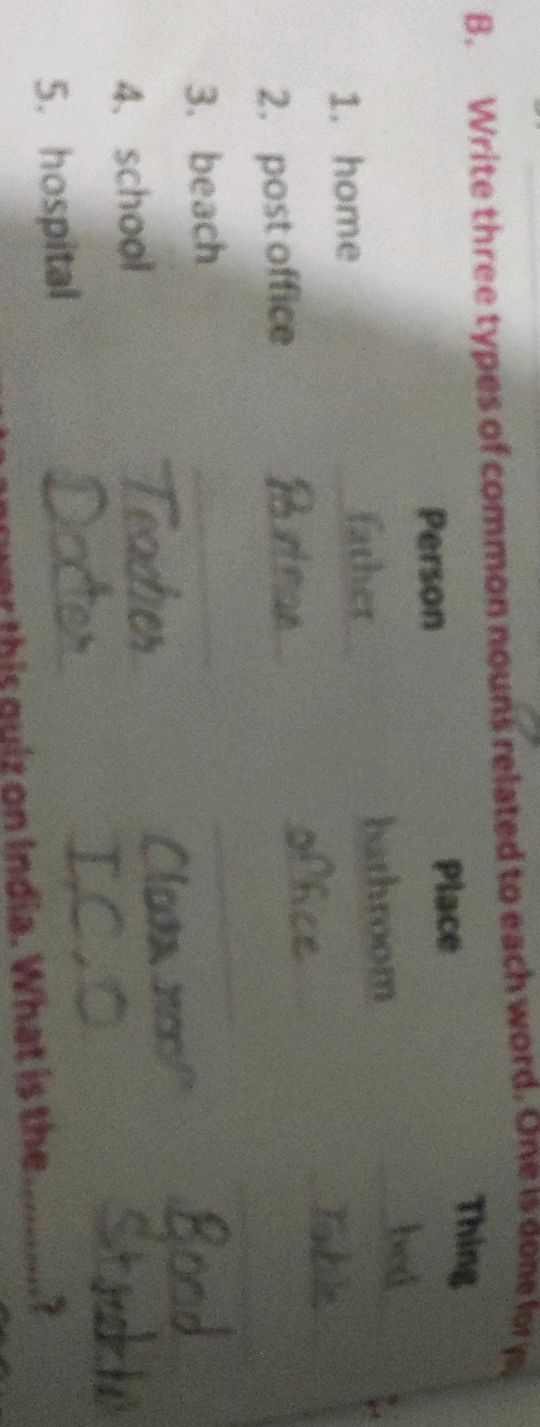 B. Write three types of common nouns related to each word. One is done for
Person Place Thing
1. home father bathroom bed
2. post office office Table
3. beach
4. school Teacher Class room Bord
5. hospital Docter I.C.O
answer this quiz on India. What is the............?